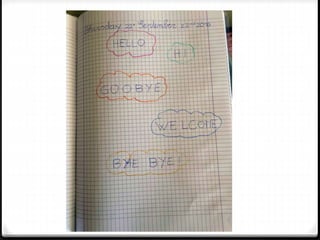 Thursday September
HELLO
HI
GOOBYE
WELCOME
BYE BYE!